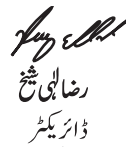 رضا الٰہی شیخ
ڈائریکٹر